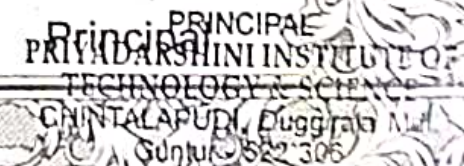 PRINCIPAL
Principal
PRIYADARSHINI INSTITUTE OF
TECHNOLOGY & SCIENCE
CHINTALAPUDI, Duggirala
Guntur - 522 306